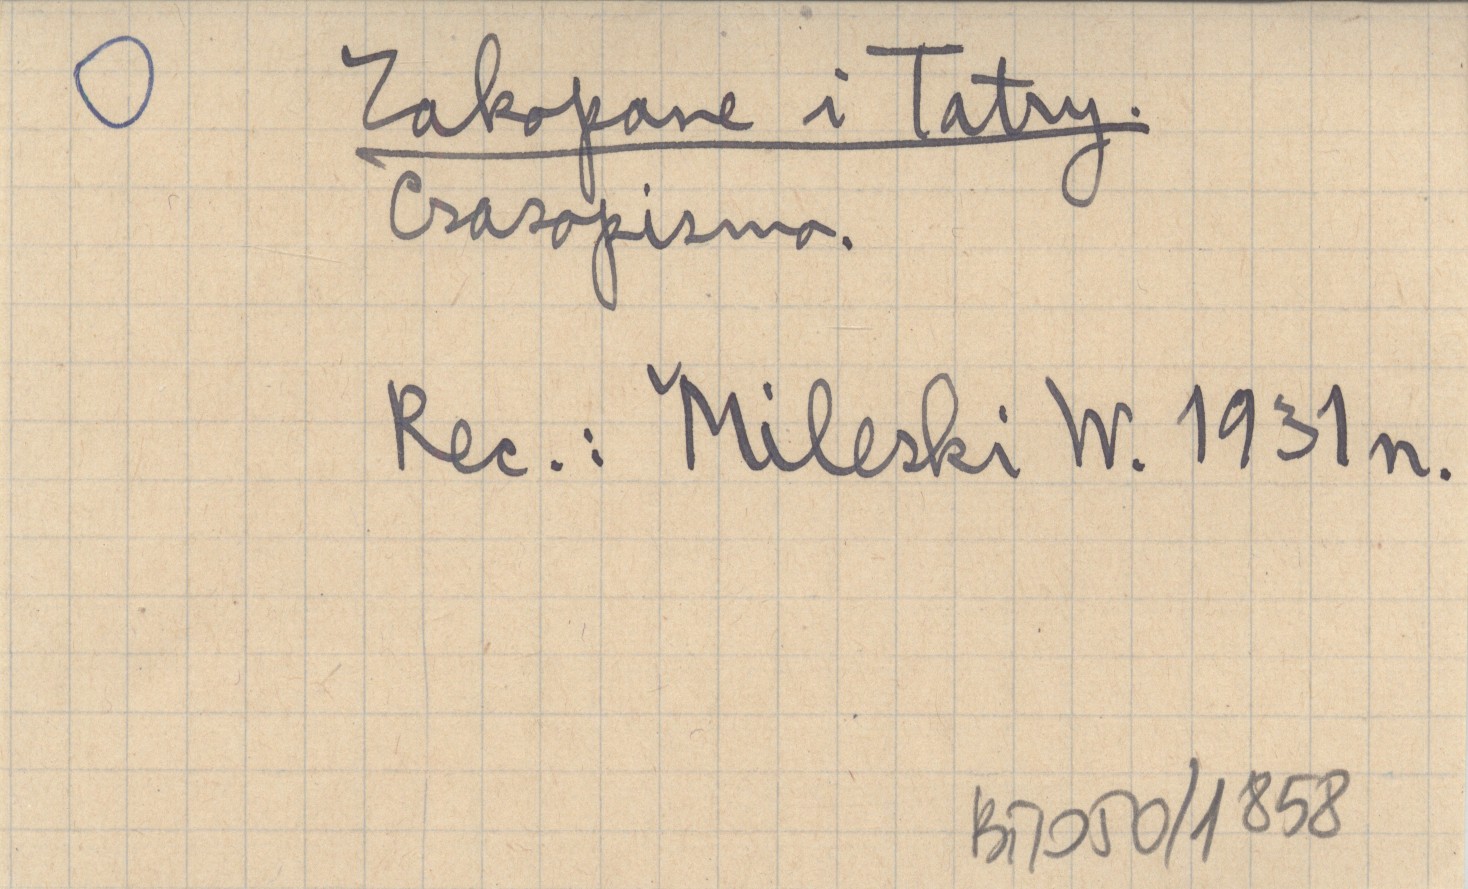 Zakopane i Tatry.
Czasopismo.
Rec.: Mileski W. 1931 n.
Bi7050/1858